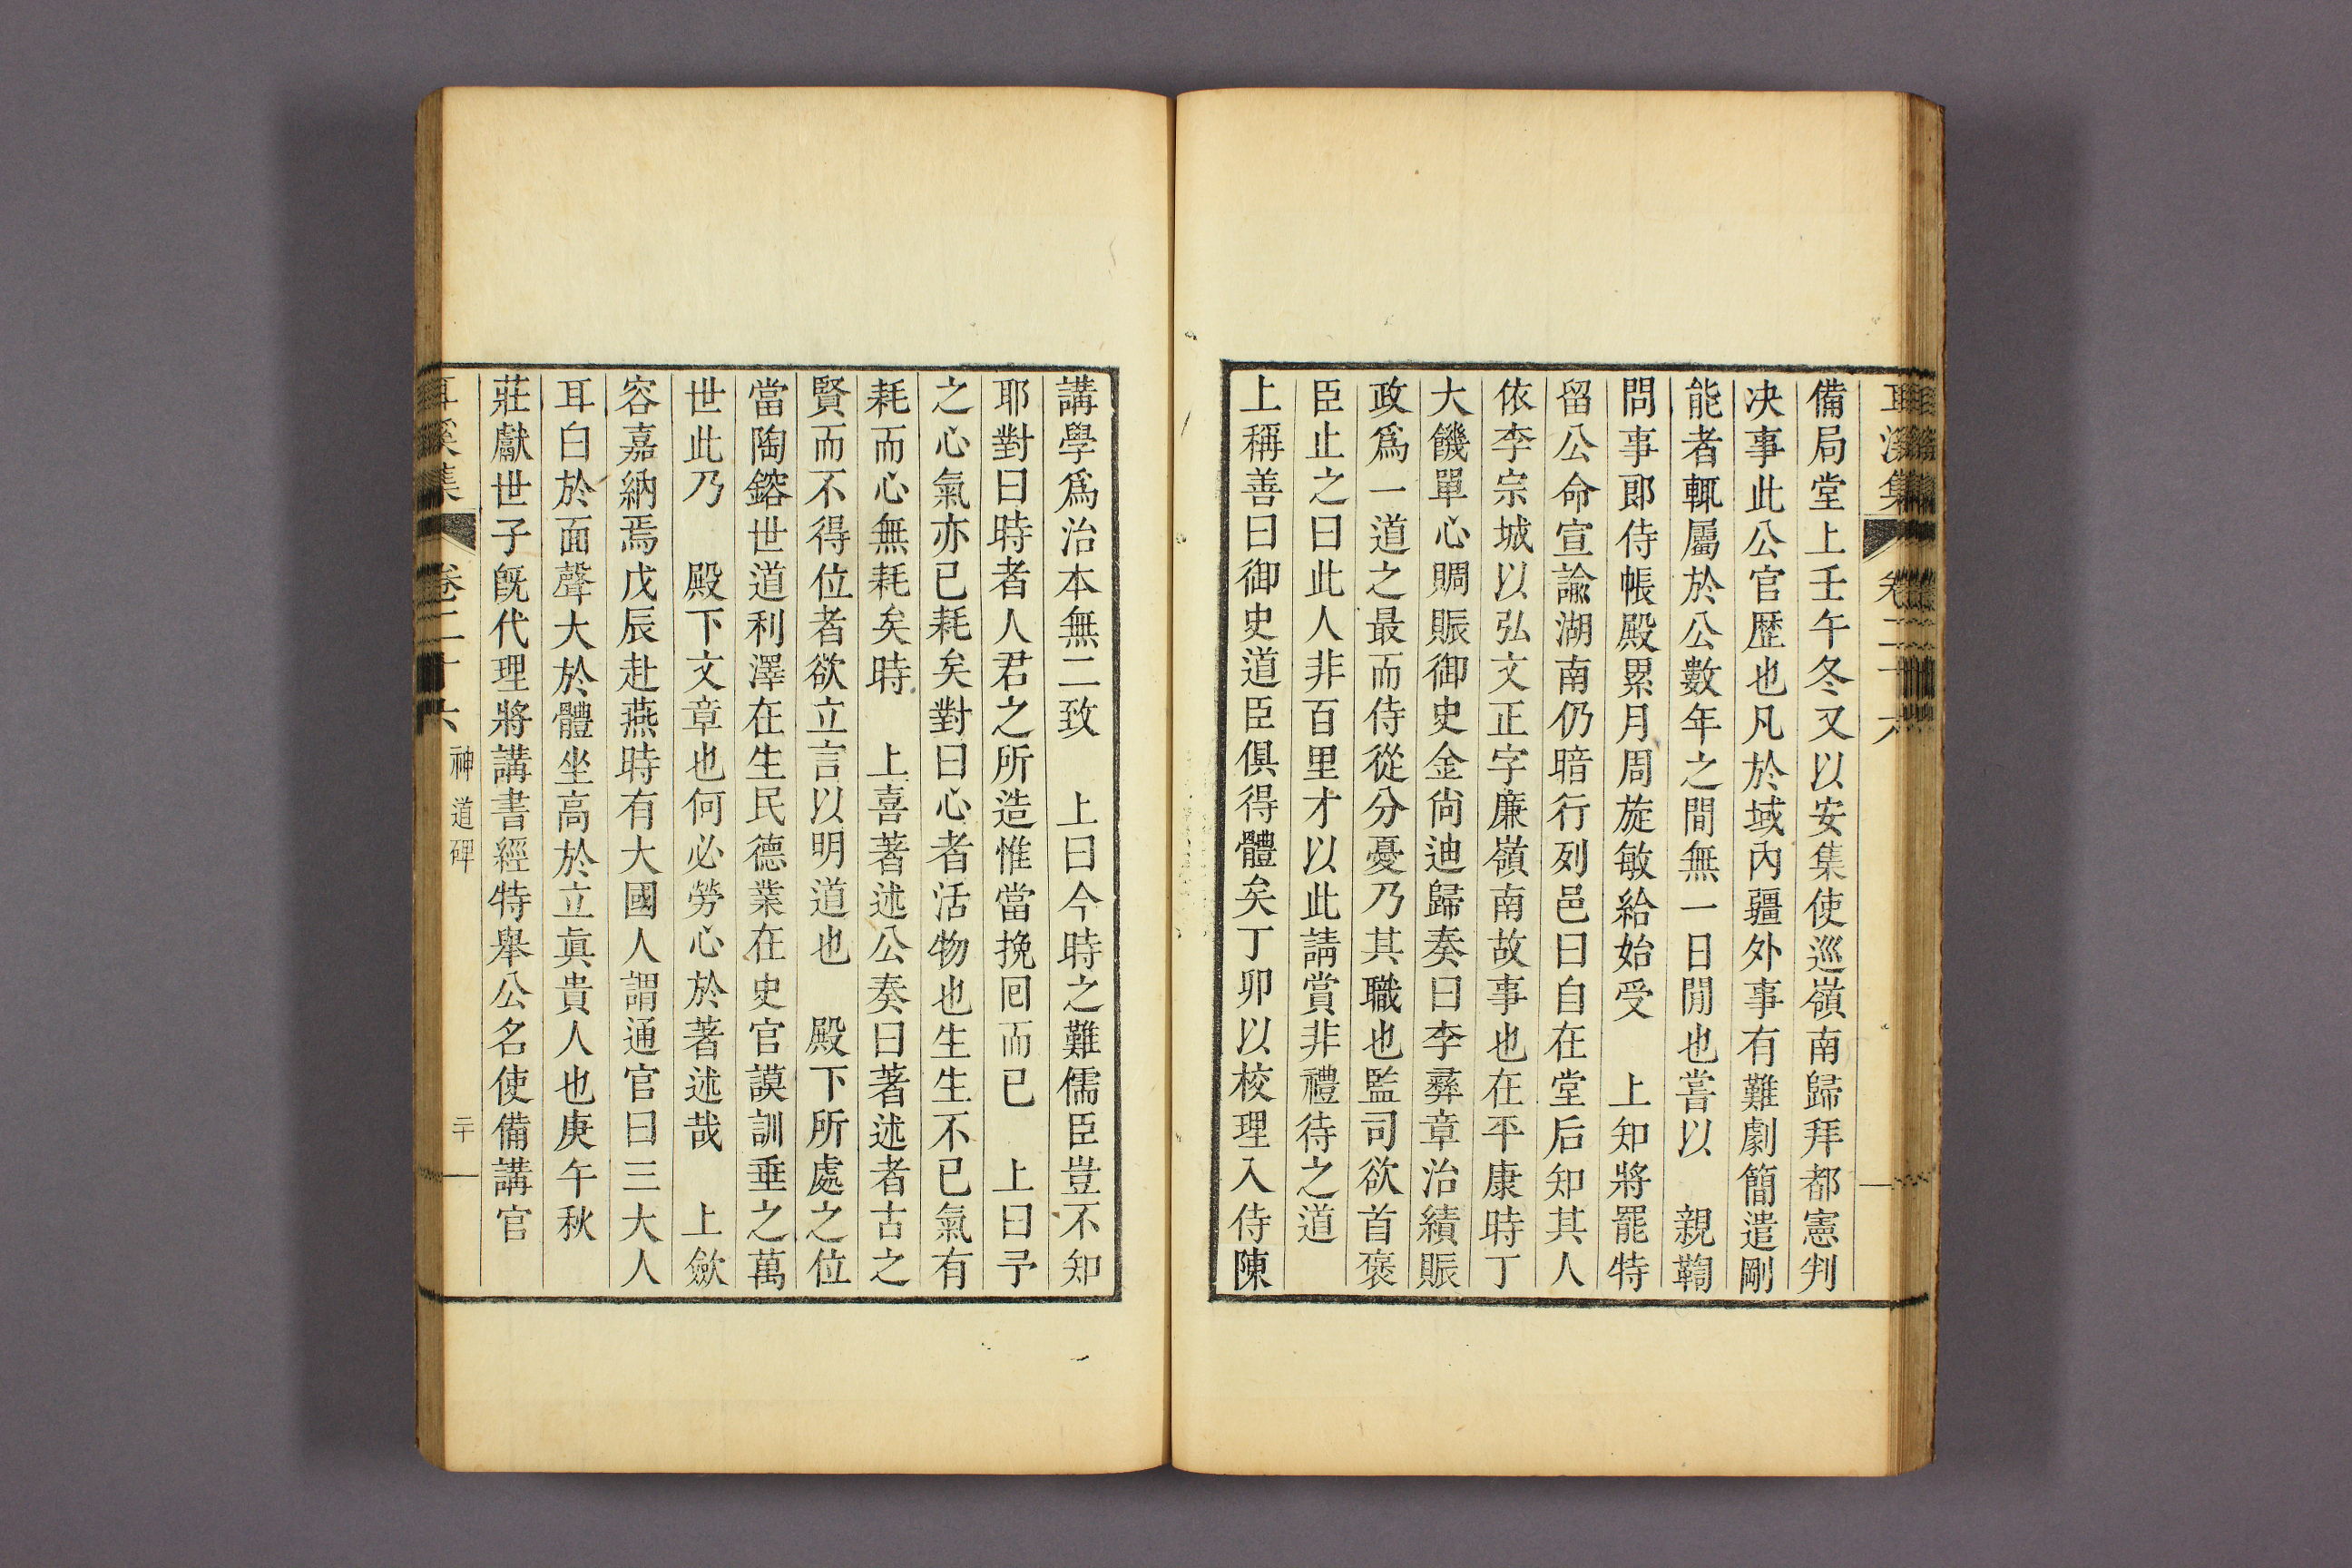 耳溪集 卷二十六
備局堂上壬午冬又以安集使巡嶺南歸拜都憲判
决事此公官歷也凡於域內疆外事有難劇簡遣剛
能者輒屬於公數年之間無一日閒也嘗以　親鞫
問事郞侍帳殿累月周旋敏給始受　上知將罷特
留公命宣諭湖南仍暗行列邑曰自在堂后知其人
依李宗城以弘文正字廉嶺南故事也在平康時丁
大饑單心賙賑御史金尙迪歸奏曰李彛章治績賑
政爲一道之最而侍從分憂乃其職也監司欲首褒
臣止之曰此人非百里才以此請賞非禮待之道
上稱善曰御史道臣俱得體矣丁卯以校理入侍陳
講學爲治本無二致　上曰今時之難儒臣豈不知
耶對曰時者人君之所造惟當挽回而已　上曰予
之心氣亦已耗矣對曰心者活物也生生不已氣有
耗而心無耗矣時　上喜著述公奏曰著述者古之
賢而不得位者欲立言以明道也　殿下所處之位
當陶鎔世道利澤在生民德業在史官謨訓垂之萬
世此乃　殿下文章也何必勞心於著述哉　上歛
容嘉納焉戊辰赴燕時有大國人謂通官曰三大人
耳白於面聲大於體坐高於立眞貴人也庚午秋
莊獻世子旣代理將講書經特舉公名使備講官
耳溪集 卷二十六 神道碑 二十